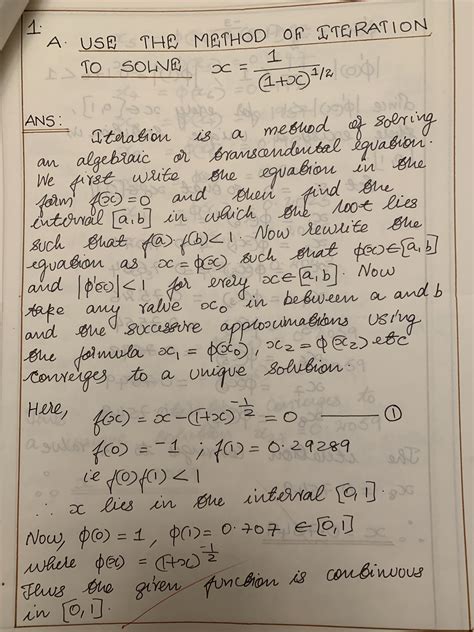 1.
A. USE THE METHOD OF ITERATION
TO SOLVE x = 1/(1+x)^1/2
ANS:
Iteration is a method of solving
an algebraic or transcendental equation.
We first write the equation in the
form f(x)=0 and then find the
interval [a,b] in which the root lies
such that f(a) f(b)<1. Now rewrite the
equation as x=φ(x) such that φ(x)∈[a,b]
and |φ'(x)|<1 for every x∈[a,b]. Now
take any value x₀ in between a and b
and the successive approximations using
the formula x₁ = φ(x₀), x₂ = φ(x₂) etc
converges to a unique solution.
Here,
f(x) = x-(1+x)^-1/2 = 0 —— ①
f(0) = -1 ; f(1) = 0.29289
ie f(0) f(1) < 1
∴ x lies in the interval [0,1]
Now, φ(0) = 1, φ(1) = 0.707 ∈ [0,1]
where φ(x) = (1+x)^-1/2
Thus the given function is continuous
in [0,1].